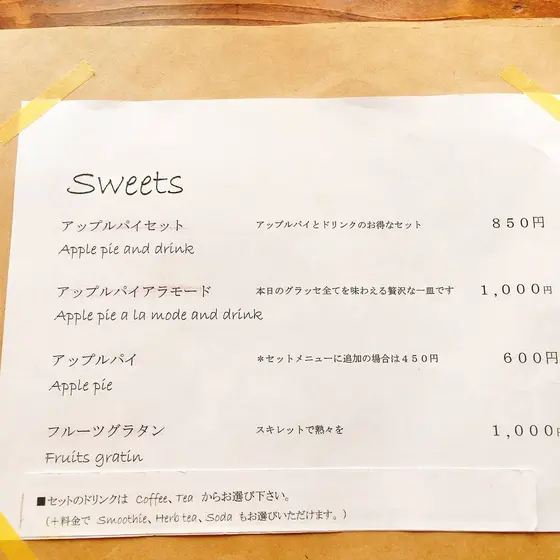 Sweets
アップルパイセット アップルパイとドリンクのお得なセット 850円
Apple pie and drink
アップルパイアラモード 本日のグラッセ全てを味わえる贅沢な一皿です 1,000円
Apple pie a la mode and drink
アップルパイ *セットメニューに追加の場合は450円 600円
Apple pie
フルーツグラタン スキレットで熱々を 1,000円
Fruits gratin
■セットのドリンクは Coffee、Tea からお選び下さい。
(+料金で Smoothie、Herb tea、Soda もお選びいただけます。)